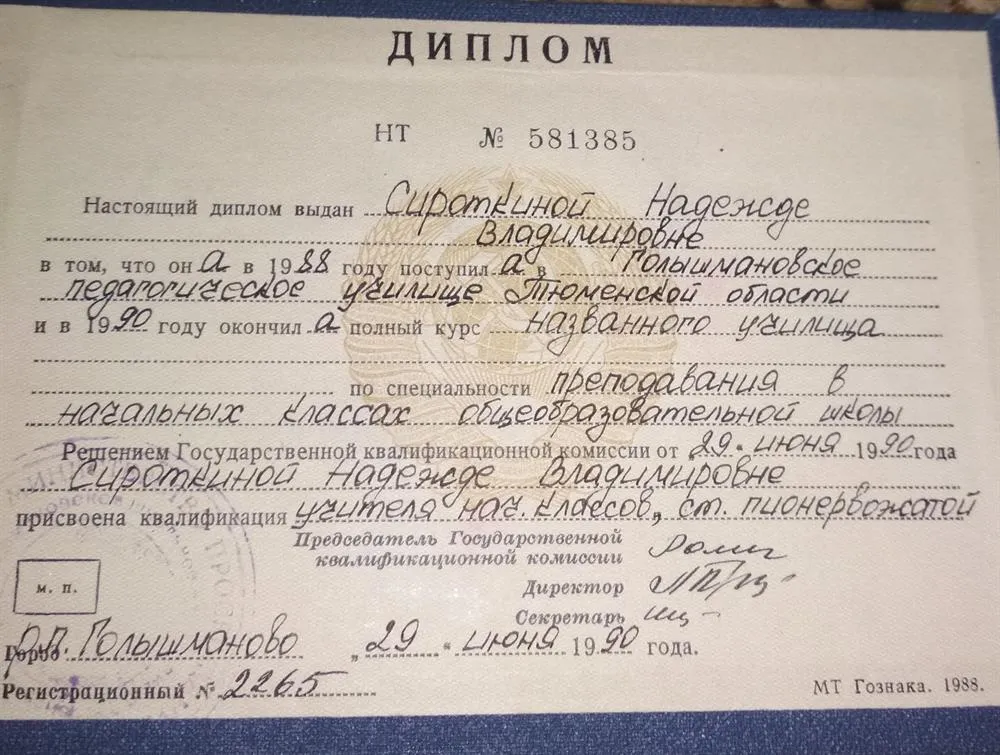 ДИПЛОМ
НТ № 581385
Настоящий диплом выдан Сироткиной Надежде
Владимировне
в том, что она в 1988 году поступила в Голышмановское
педагогическое училище Тюменской области
и в 1990 году окончила полный курс названного училища
по специальности преподавания в
начальных классах общеобразовательной школы
Решением Государственной квалификационной комиссии от 29 июня 1990 года
Сироткиной Надежде Владимировне
присвоена квалификация учителя нач. классов, ст. пионервожатой
Председатель Государственной
квалификационной комиссии
Директор
м. п.
Секретарь
Город р.п. Голышманово „29" июня 1990 года.
Регистрационный № 2265
МТ Гознака. 1988.